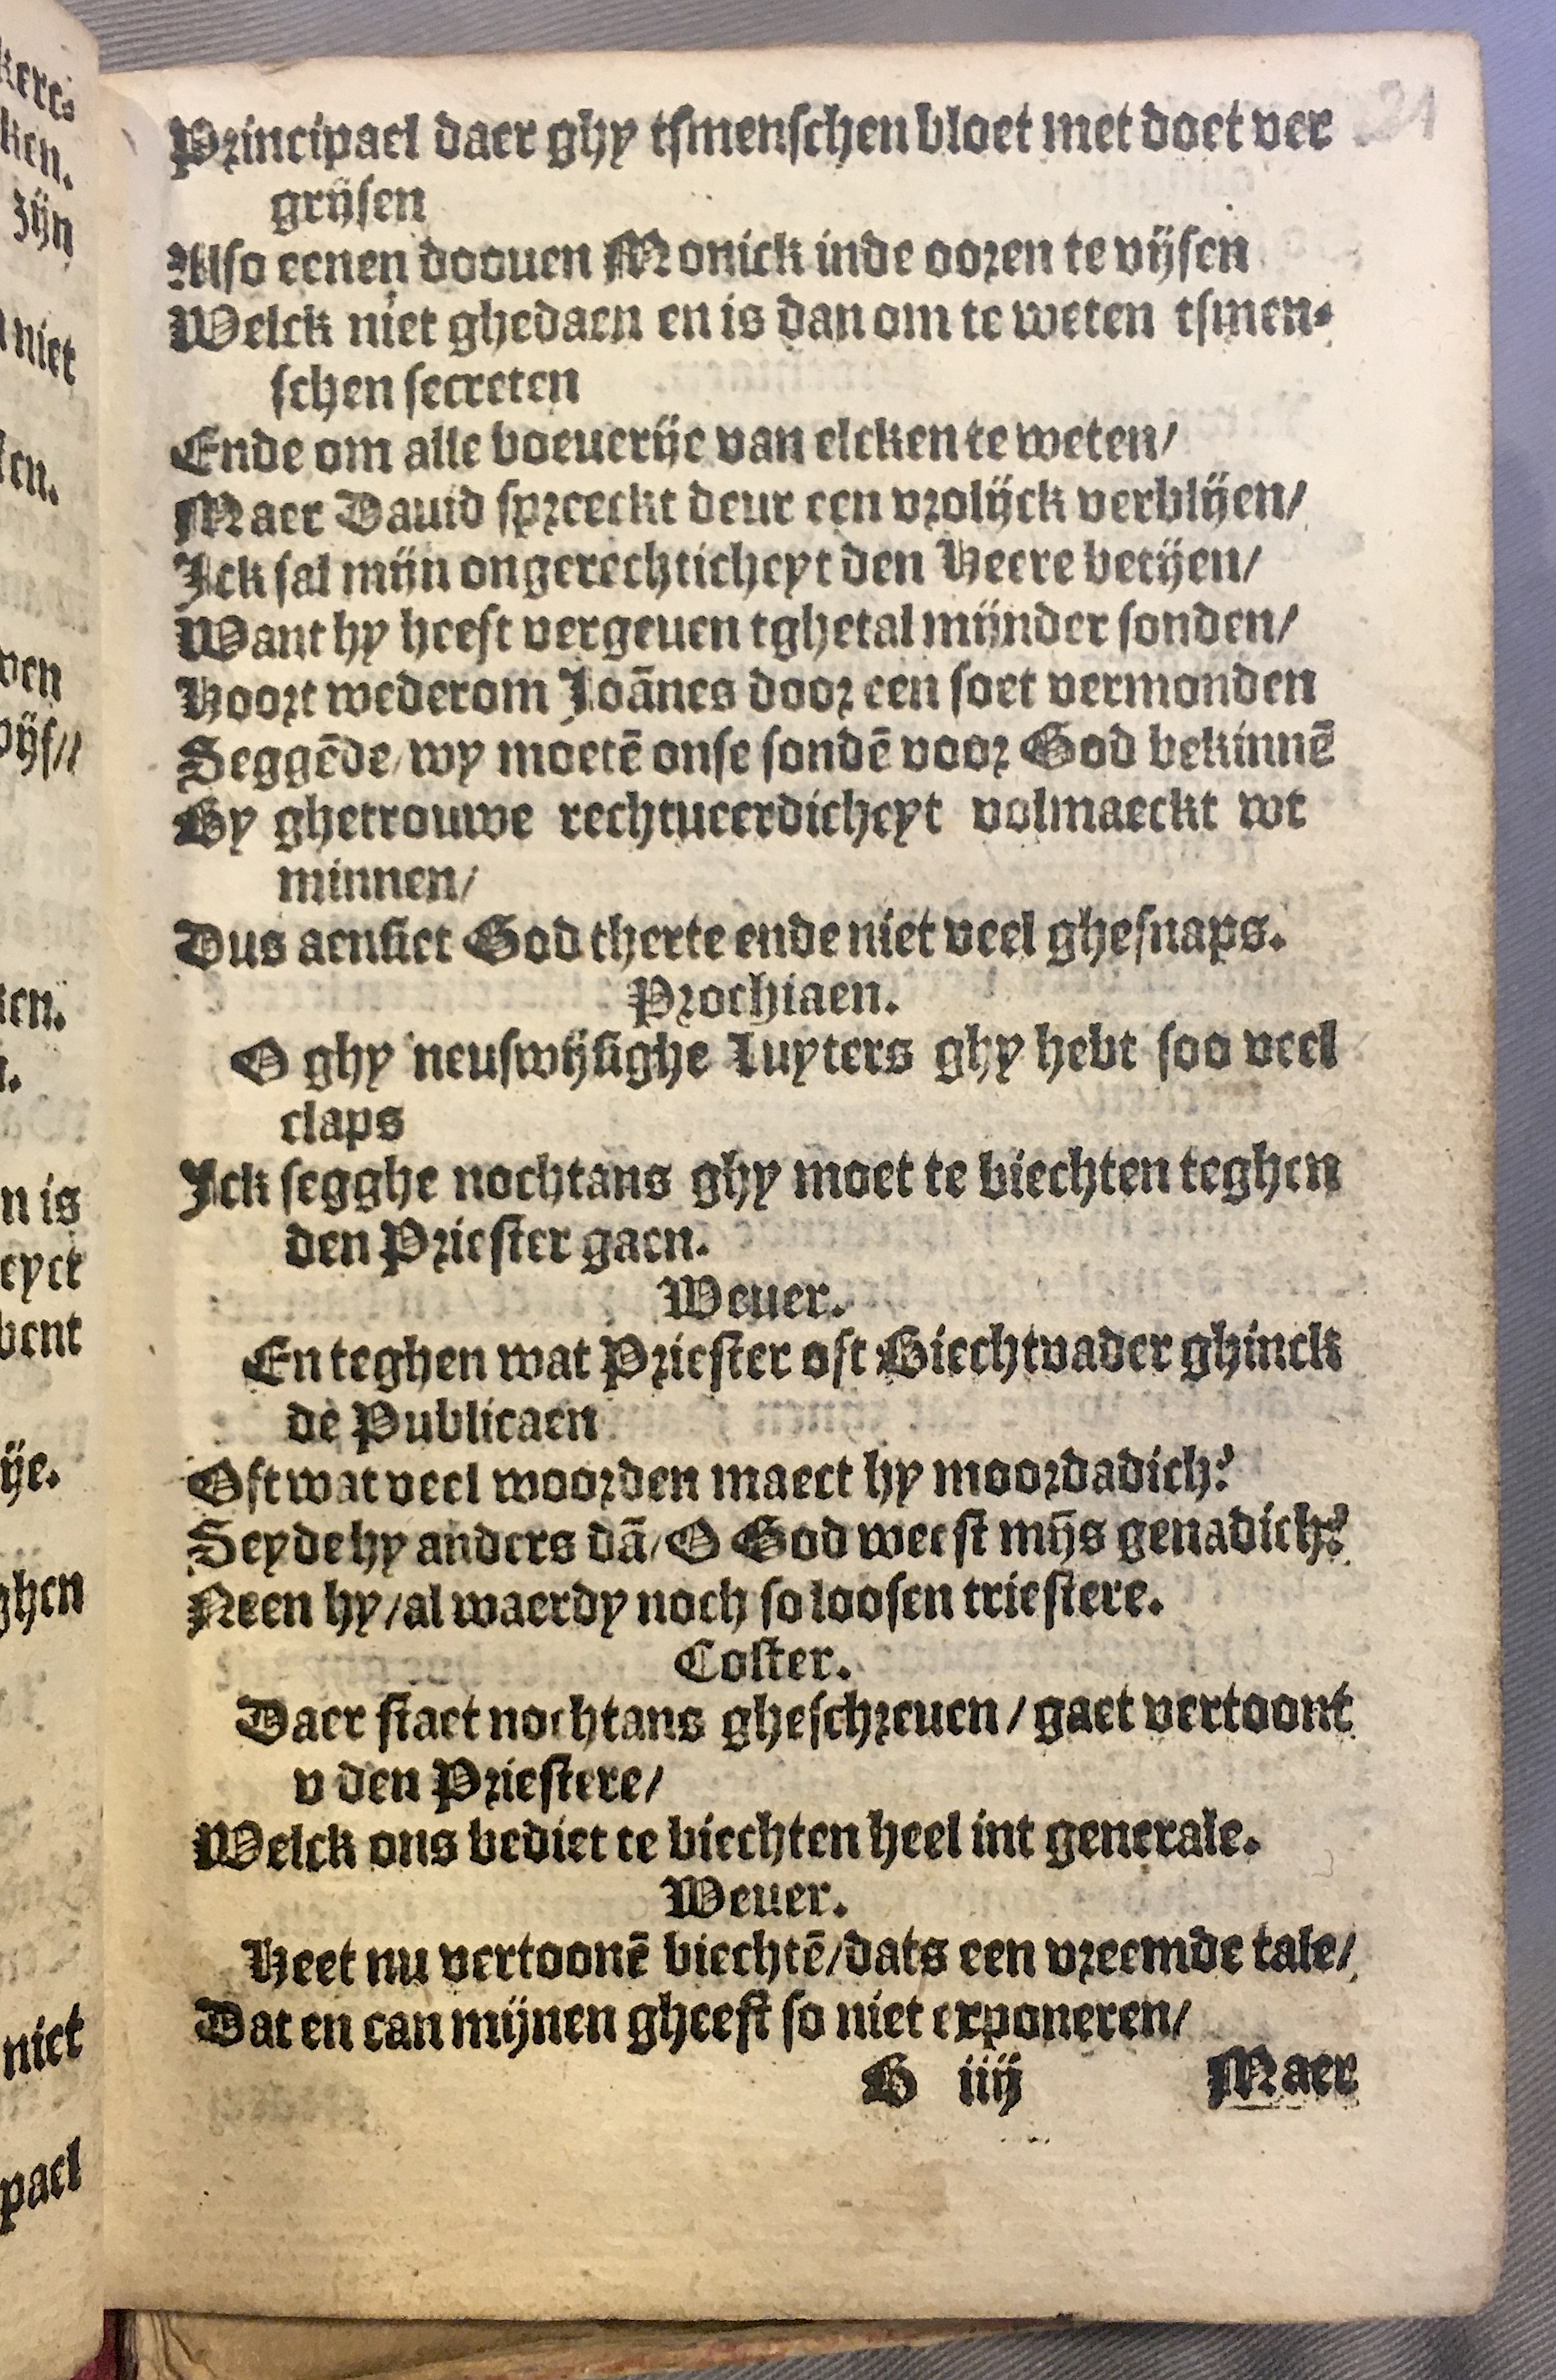 21
Principael daer ghy tsmenschen bloet met doet ver
grijsen
Also eenen doouen Monick inde ooren te vijsen
Welck niet ghedaen en is dan om te weten tsmen-
schen secreten
Ende om alle boeuerije van elcken te weten/
Maer Dauid spreeckt deur een vrolijck verblijen/
Ick sal mijn ongerechticheyt den Heere betijen/
Want hy heeft vergeuen tghetal mijnder sonden/
Hoort wederom Joānes door een soet vermonden
Seggēde/wy moetē onse sondē voor God bekinnē
By ghetrouwe rechtueerdicheyt volmaeckt wt
minnen/
Dus aensiet God therte ende niet veel ghesnaps.
Prochiaen.
O ghy neuswijsighe Luyters ghy hebt soo veel
claps
Ick segghe nochtans ghy moet te biechten teghen
den Priester gaen.
Weuer.
En teghen wat Priester oft Biechtvader ghinck
de Publicaen
Oft wat veel woorden maect hy moordadich?
Seyde hy anders dā/O God weest mijs genadich?
Neen hy/al waerdy noch so loosen triestere.
Coster.
Daer staet nochtans gheschreuen/gaet vertoont
v den Priestere/
Welck ons bediet te biechten heel int generale.
Weuer.
Heet nu vertoonē biechtē/dats een vreemde tale/
Dat en can mijnen gheest so niet exponeren/
B iiij Maer
keres
ken.
zijn
niet
ken.
ven
n is
eyct
bent
ije.
ghen
niet
pael